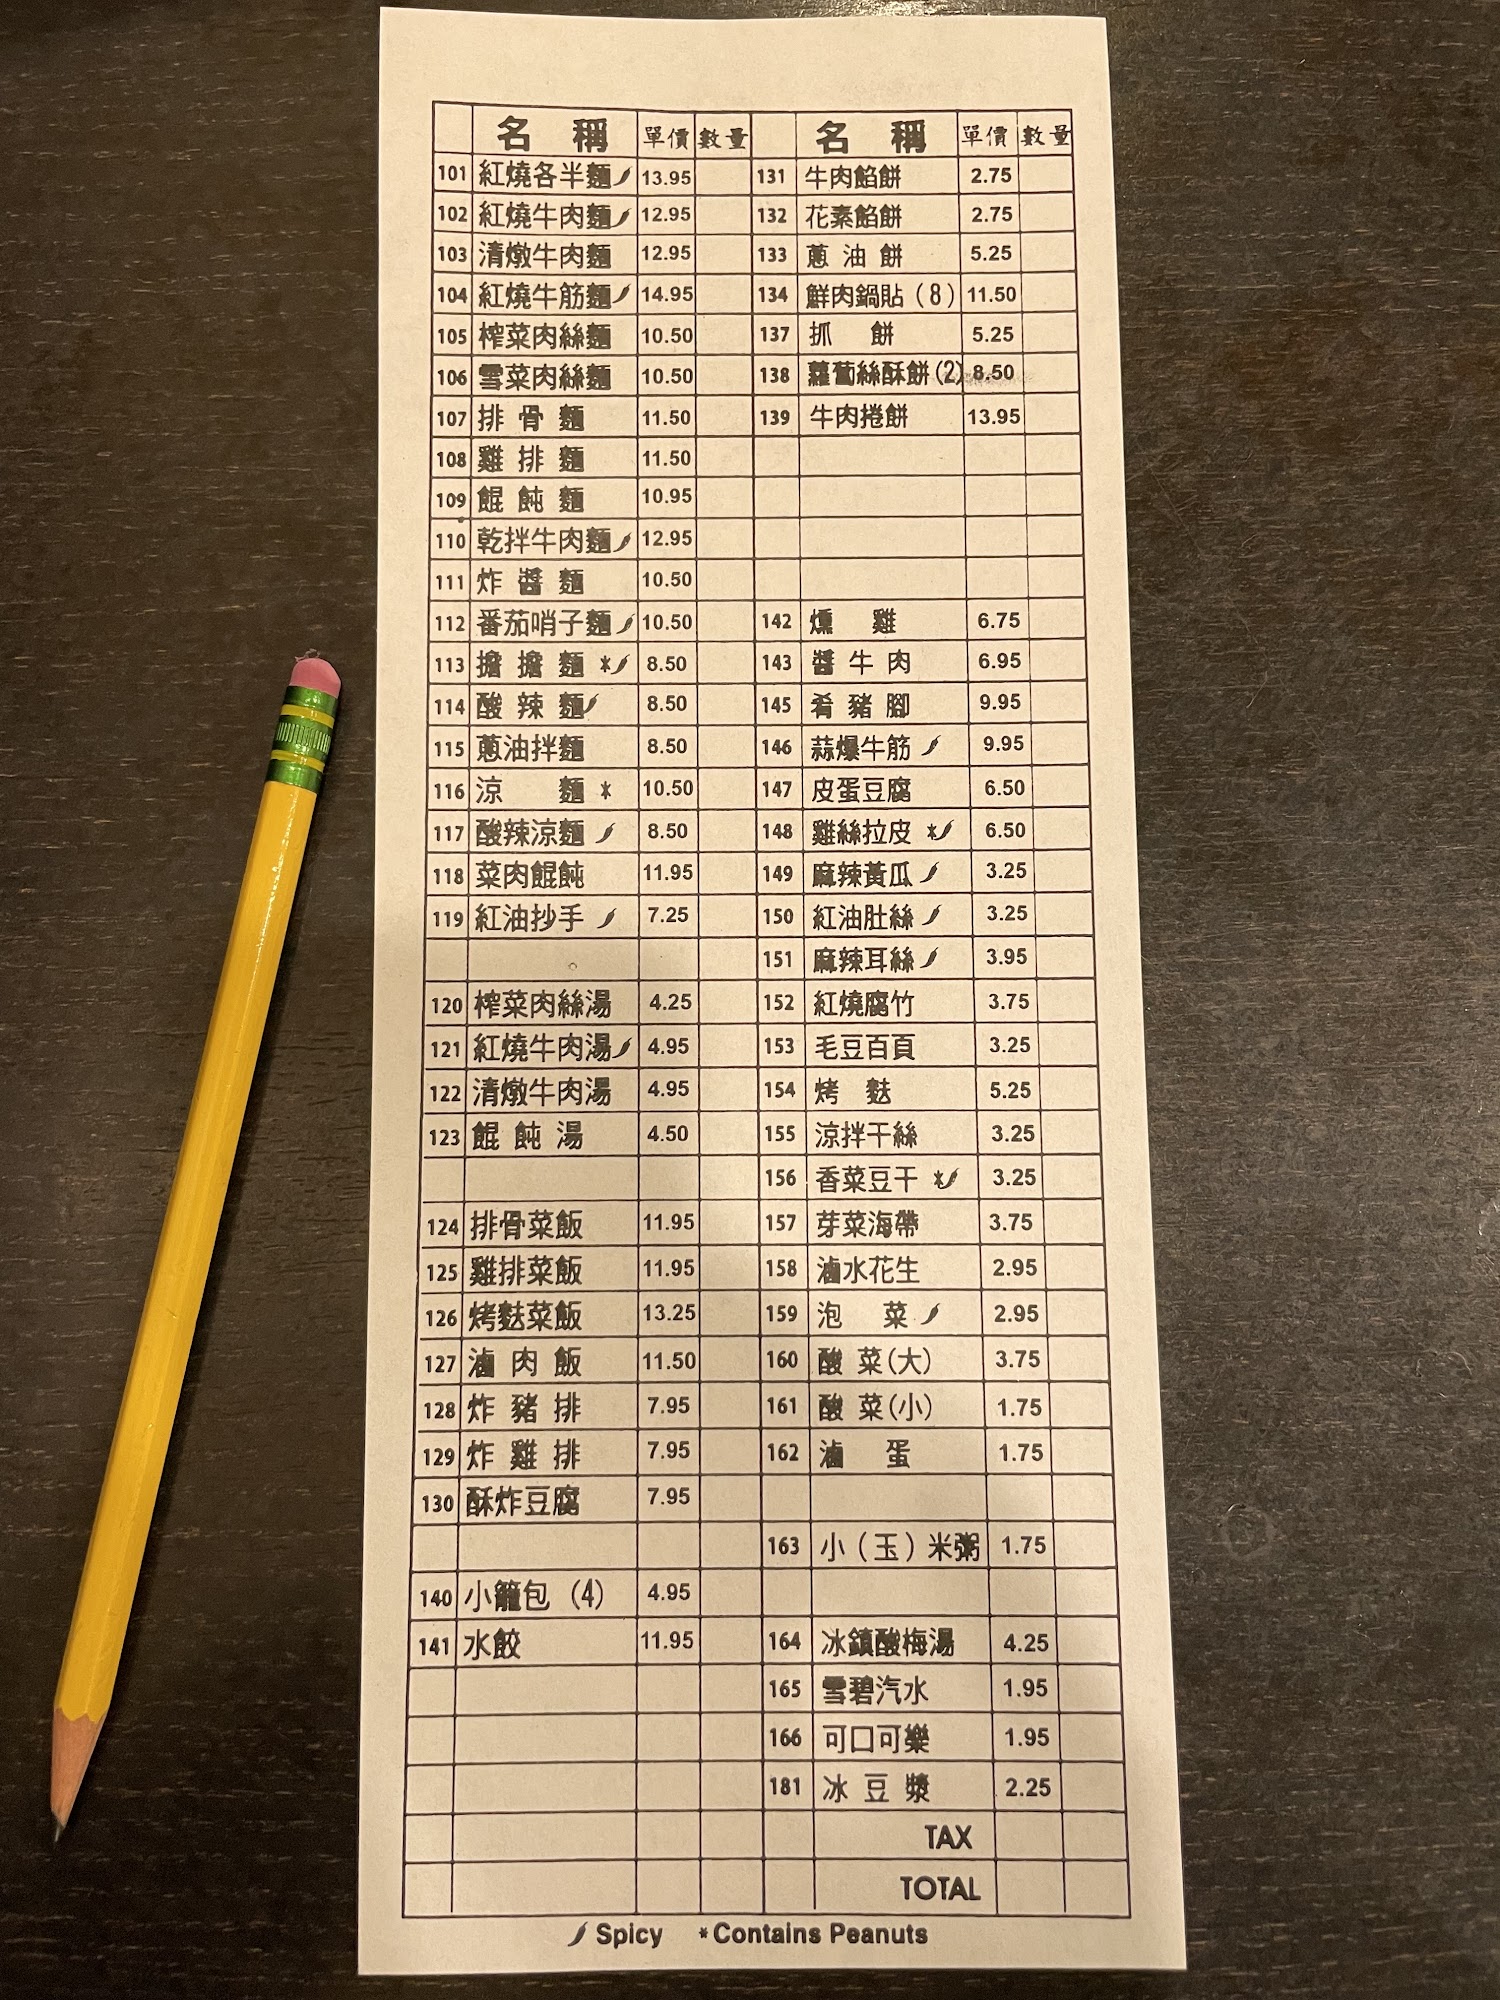 名 稱 單價 數量 名 稱 單價 數量
101 紅燒各半麵 13.95 131 牛肉餡餅 2.75
102 紅燒牛肉麵 12.95 132 花素餡餅 2.75
103 清燉牛肉麵 12.95 133 蔥油餅 5.25
104 紅燒牛筋麵 14.95 134 鮮肉鍋貼（8） 11.50
105 榨菜肉絲麵 10.50 137 抓餅 5.25
106 雪菜肉絲麵 10.50 138 蘿蔔絲酥餅(2) 8.50
107 排骨麵 11.50 139 牛肉捲餅 13.95
108 雞排麵 11.50
109 餛飩麵 10.95
110 乾拌牛肉麵 12.95
111 炸醬麵 10.50
112 番茄哨子麵 10.50 142 燻雞 6.75
113 擔擔麵 * 8.50 143 醬牛肉 6.95
114 酸辣麵 8.50 145 肴豬腳 9.95
115 蔥油拌麵 8.50 146 蒜爆牛筋 9.95
116 涼麵 * 10.50 147 皮蛋豆腐 6.50
117 酸辣涼麵 8.50 148 雞絲拉皮 * 6.50
118 菜肉餛飩 11.95 149 麻辣黃瓜 3.25
119 紅油抄手 7.25 150 紅油肚絲 3.25
151 麻辣耳絲 3.95
120 榨菜肉絲湯 4.25 152 紅燒腐竹 3.75
121 紅燒牛肉湯 4.95 153 毛豆百頁 3.25
122 清燉牛肉湯 4.95 154 烤麩 5.25
123 餛飩湯 4.50 155 涼拌干絲 3.25
156 香菜豆干 * 3.25
124 排骨菜飯 11.95 157 芽菜海帶 3.75
125 雞排菜飯 11.95 158 滷水花生 2.95
126 烤麩菜飯 13.25 159 泡菜 2.95
127 滷肉飯 11.50 160 酸菜(大) 3.75
128 炸豬排 7.95 161 酸菜(小) 1.75
129 炸雞排 7.95 162 滷蛋 1.75
130 酥炸豆腐 7.95
163 小（玉）米粥 1.75
140 小籠包 (4) 4.95
141 水餃 11.95 164 冰鎮酸梅湯 4.25
165 雪碧汽水 1.95
166 可口可樂 1.95
181 冰豆漿 2.25
TAX
TOTAL
Spicy *Contains Peanuts